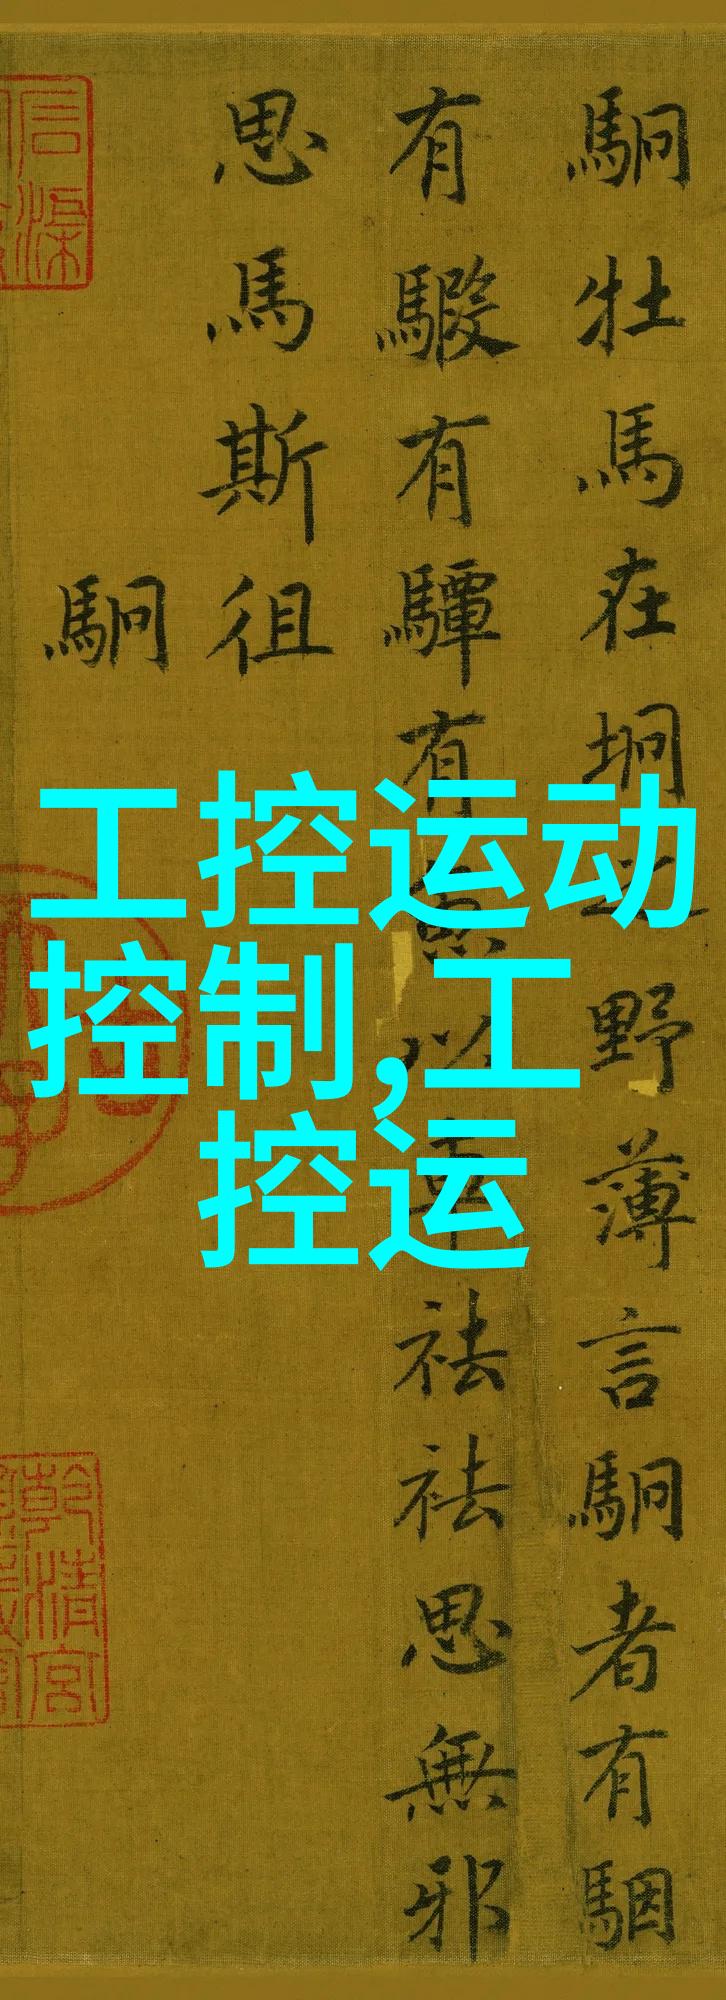 駉牡馬在坰之野薄言駉者有駰
有騢有驔有魚以車祛祛思無邪
思馬斯徂
駉
工控运动
控制,工
控运
乾清宮